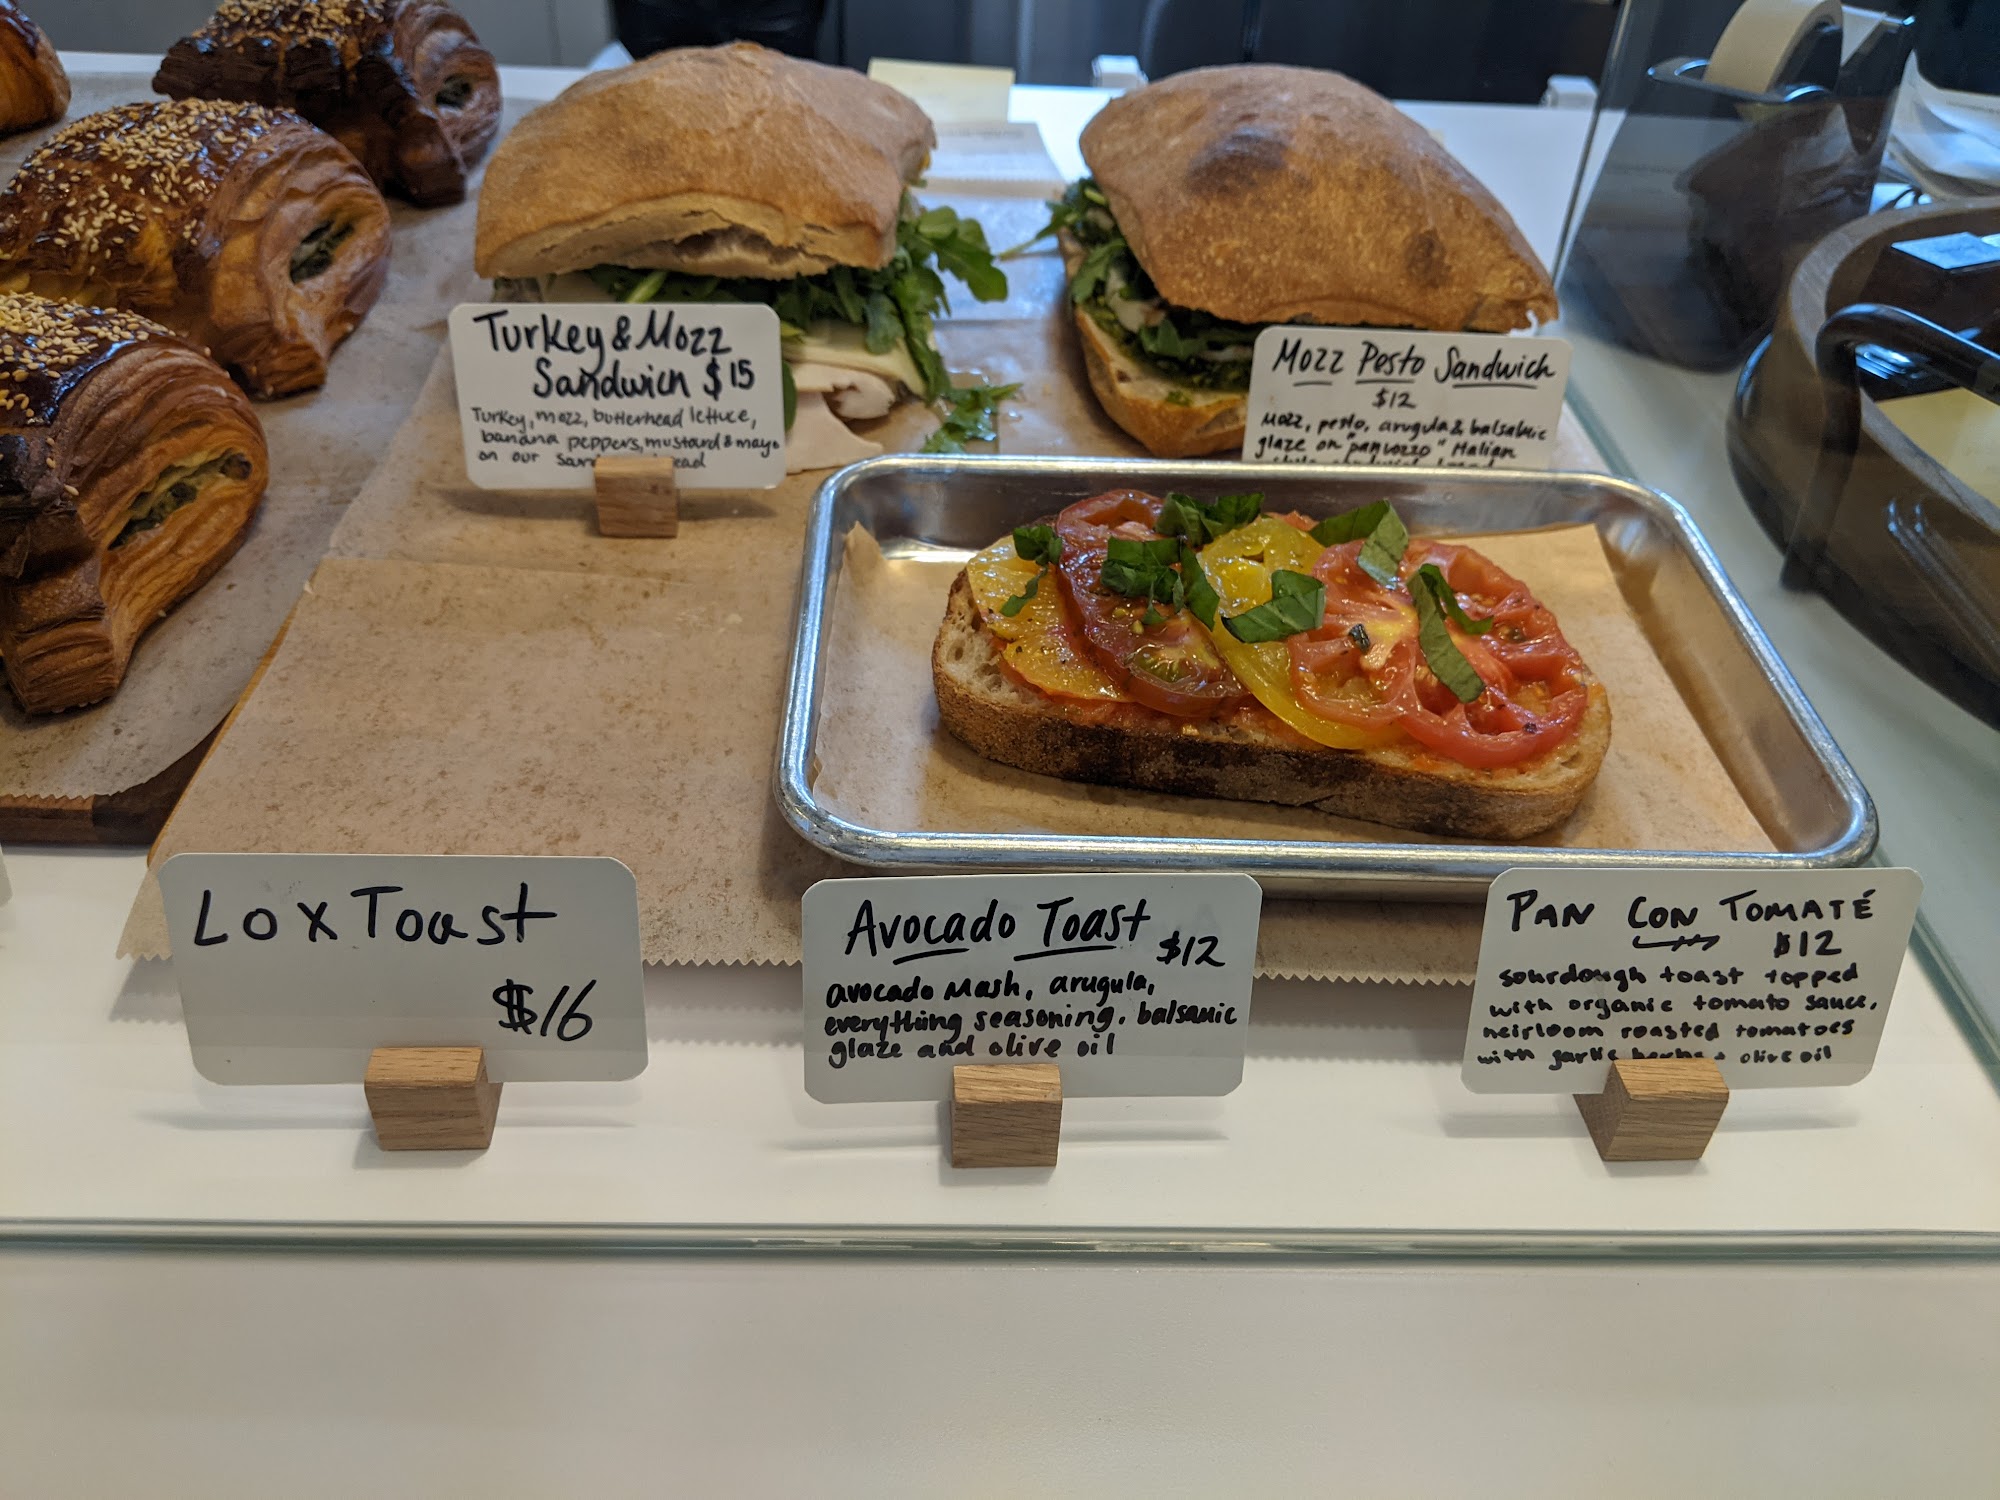 Turkey & Mozz
Sandwich $15
Turkey, mozz, butterhead lettuce,
banana peppers, mustard & mayo
on our
Mozz Pesto Sandwich
$12
Mozz, pesto, arugula & balsamic
glaze on "panuozzo" Italian
Lox Toast
$16
Avocado Toast
$12
avocado mash, arugula,
everything seasoning, balsamic
glaze and olive oil
PAN CON TOMATÉ
$12
sourdough toast topped
with organic tomato sauce,
heirloom roasted tomatoes
with garlic herbs + olive oil